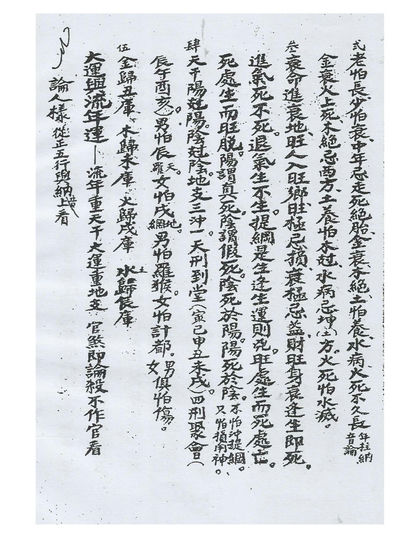 弍 老怕長少怕衰中年忌走死絕胎金衰木絕土怕養水病火死不久長 年柱納音論
金衰火上死木絕忌酉方土養怕木过水病忌坤(土)方火死怕水滅。
叁 衰命進衰地旺人入旺鄉旺極忌損衰極忌益財旺身衰逢生即死
進氣死不死。退氣生不生。提綱是生逢生運則死旺處生而死處亡。
死處生而旺脫。陽謂真死陰謂假死陰死於陽。陽死於陰。不怕沖提綱。只怕損用神。
肆 天干陽尅陽陰尅陰地支二沖一天刑到堂(寅己申丑未戌)四刑聚會(
辰午酉亥)男怕辰天羅女怕戌地網男怕羅猴。女怕計都。男女俱怕傷。
伍 金歸丑庫。木歸未庫。火歸戌庫 水土歸辰庫
大運與流年運—流年重天干大運重地支 官煞即論殺不作官看
論人樣從正五行與納音上看